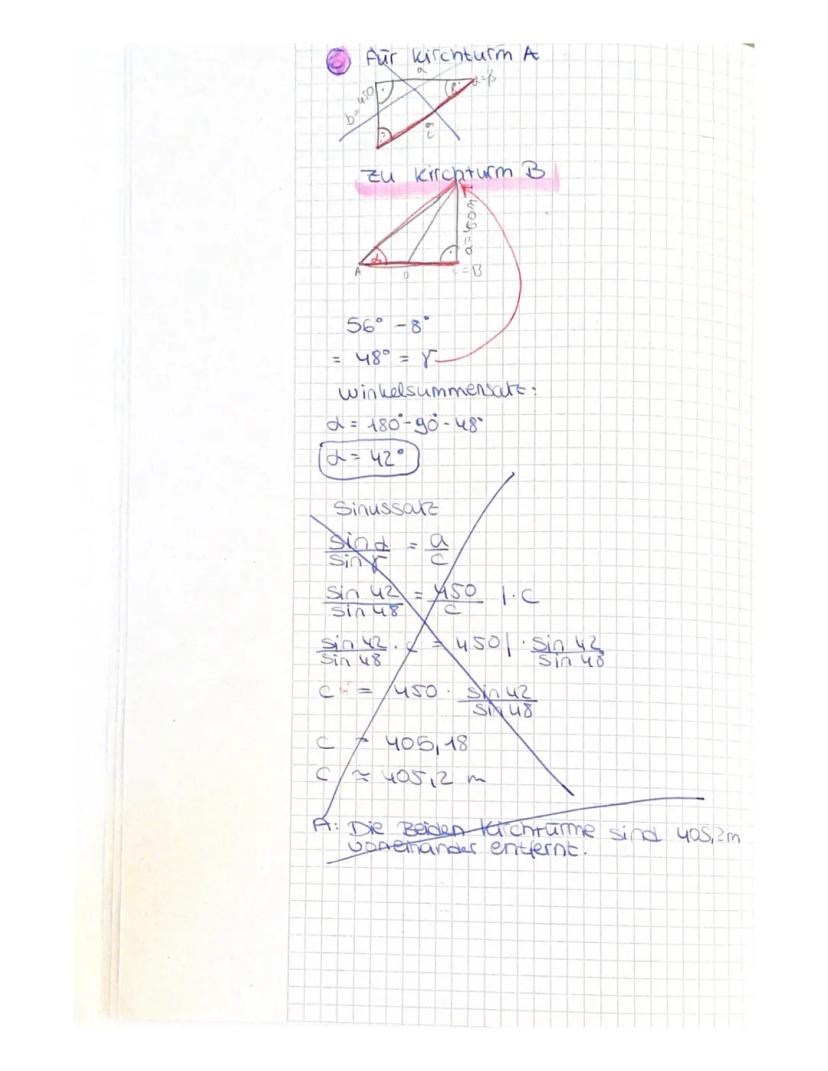 Für Kirchturm A
a
b=450
Zu Kirchturm B
a=450m
α
A
D
C=B
56° - 8°
= 48° = γ
Winkelsummensatz:
α = 180° - 90° - 48°
α = 42°
Sinussatz
sin α / sin γ = a / c
sin 42 / sin 48 = 450 / c | · c
sin 42 / sin 48 · c = 450 | · sin 42 / sin 48
c = 450 · sin 42 / sin 48
c = 405,18
c ≈ 405,2 m
A: Die Beiden Kirchtürme sind 405,2m
voneinander entfernt.